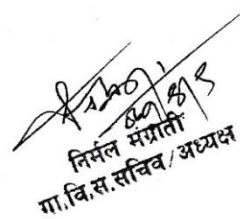 निर्मल मंग्राती
गा.वि.स.सचिव/अध्यक्ष